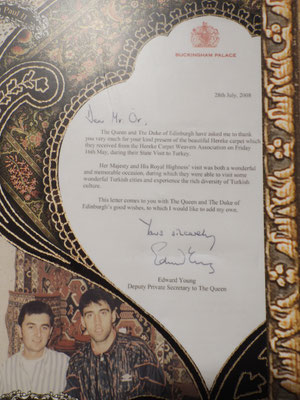 Paul II
BUCKINGHAM PALACE
28th July, 2008
Dear Mr. Or,
The Queen and The Duke of Edinburgh have asked me to thank
you very much for your kind present of the beautiful Hereke carpet which
they received from the Hereke Carpet Weavers Association on Friday
16th May, during their State Visit to Turkey.
Her Majesty and His Royal Highness' visit was both a wonderful
and memorable occasion, during which they were able to visit some
wonderful Turkish cities and experience the rich diversity of Turkish
culture.
This letter comes to you with The Queen and The Duke of
Edinburgh's good wishes, to which I would like to add my own.
Yours sincerely
Edward Young
Edward Young
Deputy Private Secretary to The Queen